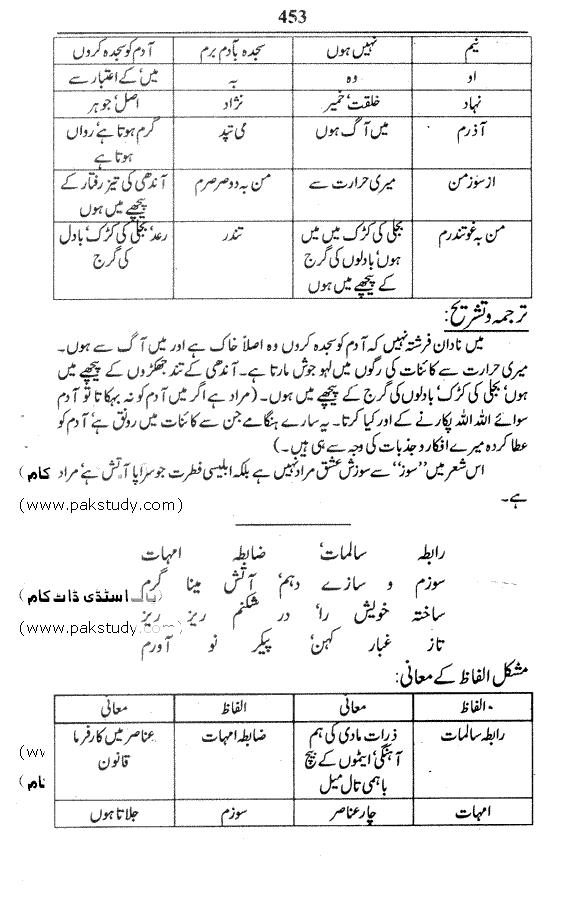 453
نیم	نہیں ہوں	سجدہ بآدم برم	آدم کو سجدہ کروں
او	وہ	بہ	میں' کے اعتبار سے
نہاد	خلقت' خمیر	نژاد	اصل' جوہر
آذرم	میں آگ ہوں	می تپد	گرم ہوتا ہے' رواں
ہوتا ہے
از سوز من	میری حرارت سے	من بہ دو صرصرم	آندھی کی تیز رفتار کے
پیچھے میں ہوں
من بہ غو تندرم	بجلی کی کڑک میں میں	تندر	رعد' بجلی کی کڑک' بادل
ہوں' بادلوں کی گرج	کی گرج
کے پیچھے میں ہوں
ترجمہ و تشریح:
میں نادان فرشتہ نہیں کہ آدم کو سجدہ کروں وہ اصلاً خاک ہے اور میں آگ سے ہوں۔
میری حرارت سے کائنات کی رگوں میں لہو جوش مارتا ہے۔ آندھی کے تند جھکڑوں کے پیچھے میں
ہوں' بجلی کی کڑک' بادلوں کی گرج کے پیچھے میں ہوں۔ (مراد ہے اگر میں آدم کو نہ بہکاتا تو آدم
سوائے اللہ اللہ پکارنے کے اور کیا کرتا۔ یہ سارے ہنگامے جن سے کائنات میں رونق ہے' آدم کو
عطا کردہ میرے افکار و جذبات کی وجہ سے ہی ہیں۔)
اس شعر میں "سوز" سے سوزش عشق مراد نہیں ہے بلکہ ابلیسی فطرت جو سراپا آتش ہے' مراد کام)
ہے۔
(www.pakstudy.com)
رابطہ سالمات' ضابطہ امہات
سوزم و سازے دہم' آتش مینا گرم
پاک اسٹڈی ڈاٹ کام)
ساختہ خویش را' در شکنم ریز ریز
(www.pakstudy.com)
تاز غبار کہن' پیکر نو آورم
مشکل الفاظ کے معانی:
الفاظ	معانی	الفاظ	معانی
رابطہ سالمات	ذرات مادی کی ہم	ضابطہ امہات	عناصر میں کارفرما
آہنگی' ایٹموں کے بیچ	قانون
(ww
باہمی تال میل
کام)
امہات	چار عناصر	سوزم	جلاتا ہوں